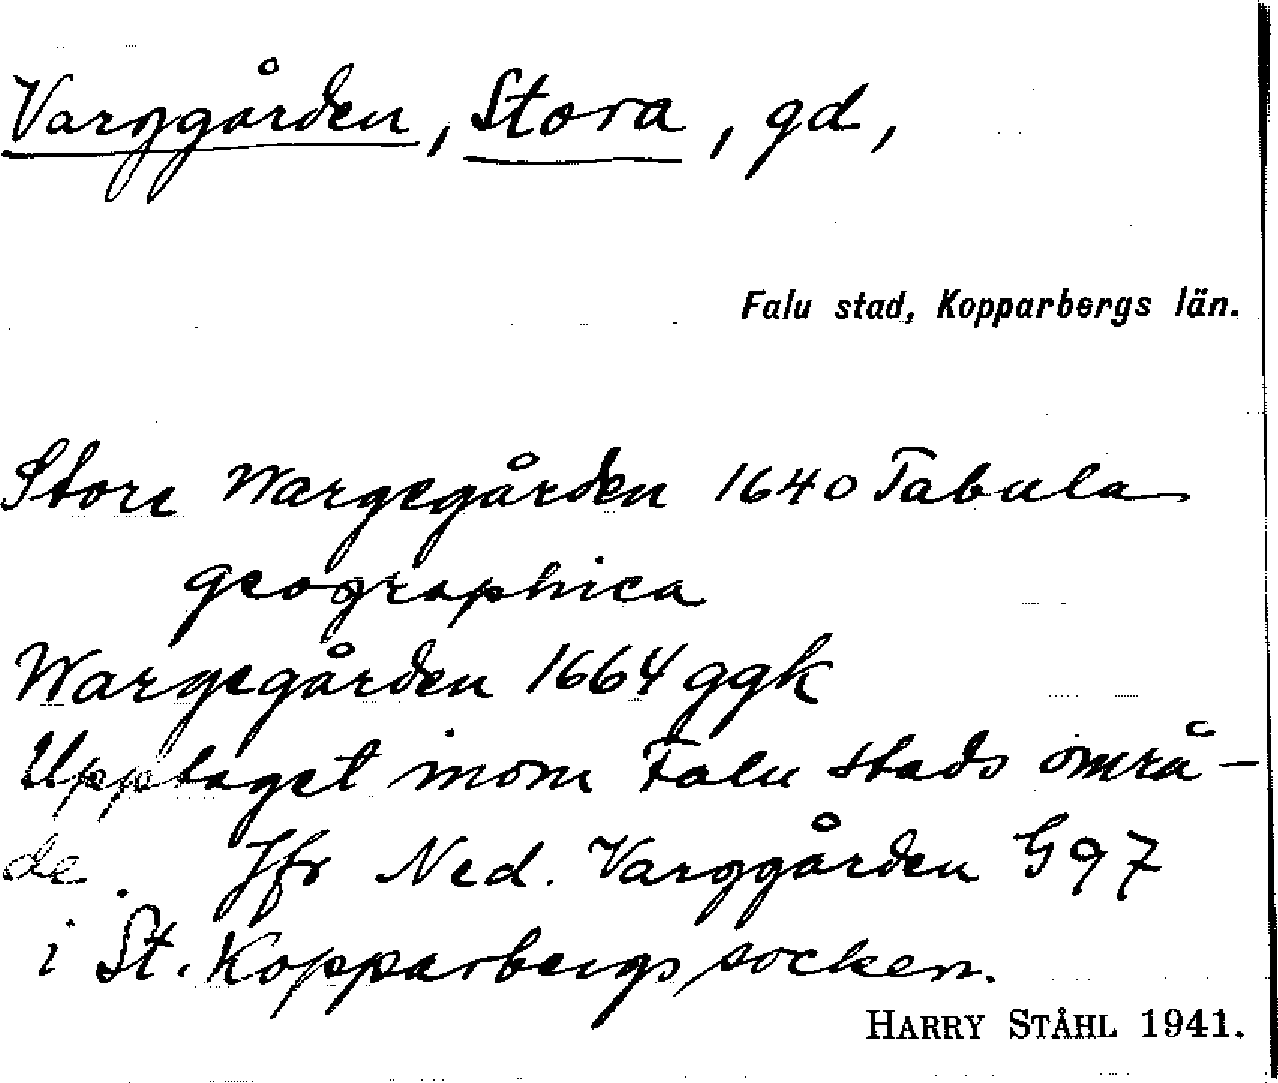 Varggården, Stora, gd,
Falu stad, Kopparbergs län.
Store Wargegården 1640 Tabula
geographica
Wargegården 1664 ggk
Upptaget inom Falu stads områ-
de. Jfr Ned. Varggården G97
i St. Kopparbergs socken.
HARRY STÅHL 1941.